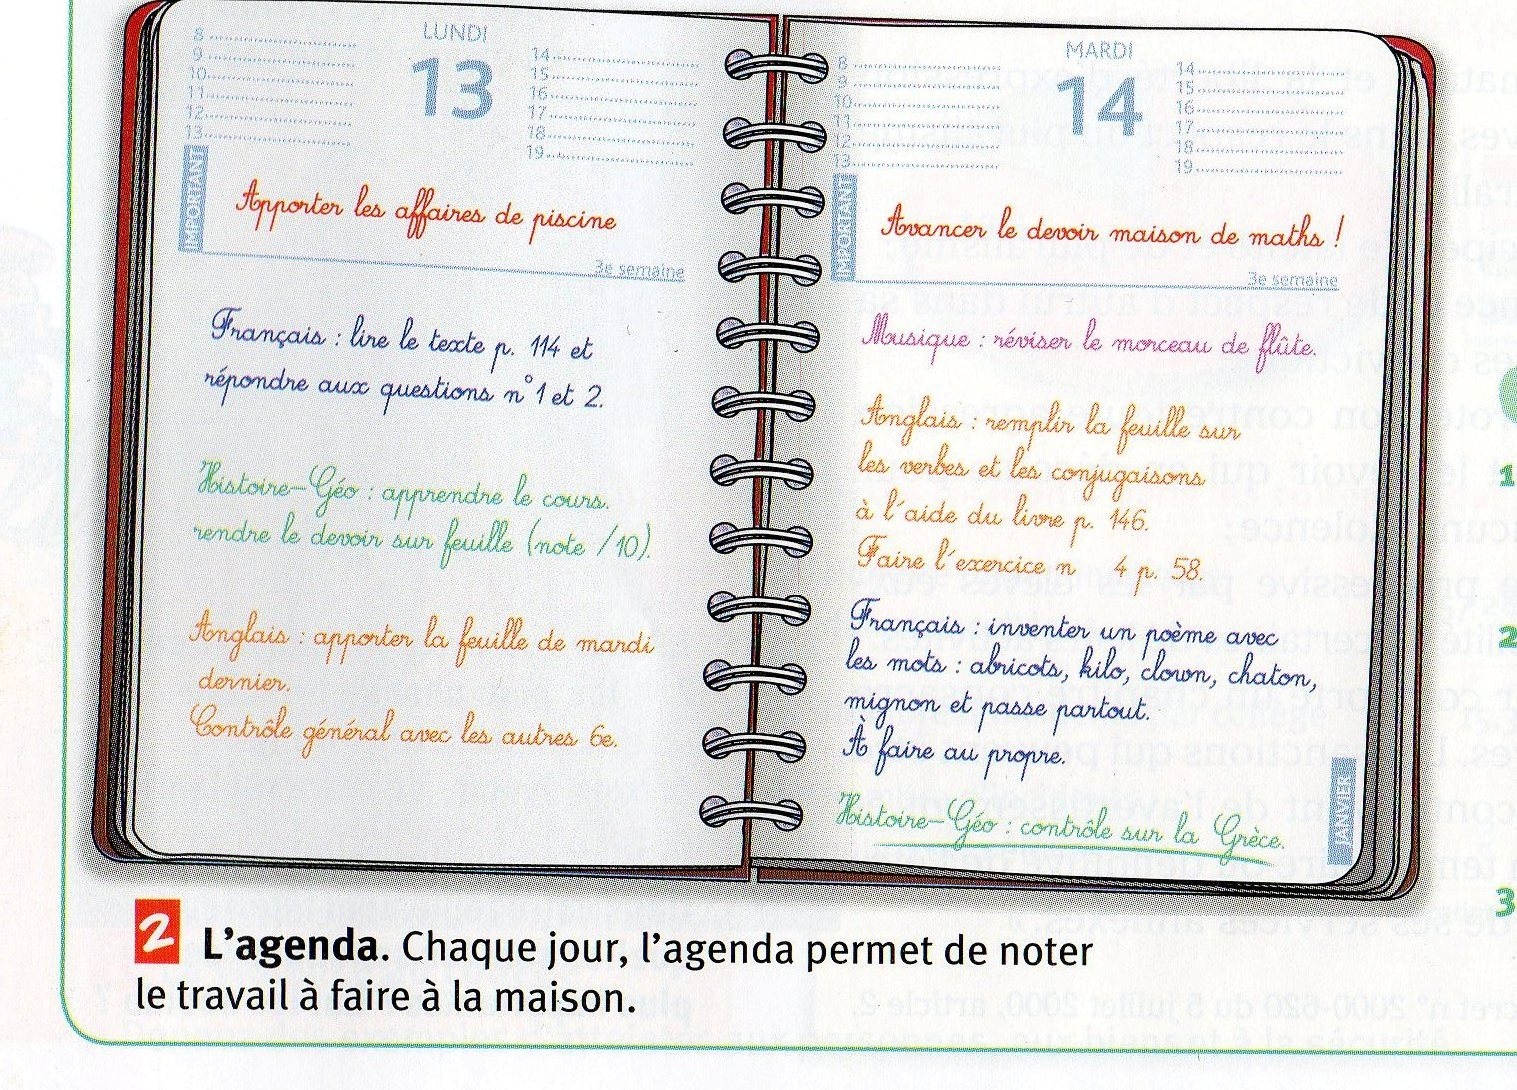 LUNDI
13
8
9
10
11
12
13
14
15
16
17
18
19
IMPORTANT
Apporter les affaires de piscine
3e semaine
Français : lire le texte p. 114 et
répondre aux questions n° 1 et 2.
Histoire-Géo : apprendre le cours.
rendre le devoir sur feuille (note /10).
Anglais : apporter la feuille de mardi
dernier.
Contrôle général avec les autres 6e.
MARDI
14
8
9
10
11
12
13
14
15
16
17
18
19
IMPORTANT
Avancer le devoir maison de maths !
3e semaine
Musique : réviser le morceau de flûte.
Anglais : remplir la feuille sur
les verbes et les conjugaisons
à l'aide du livre p. 146.
Faire l'exercice n 4 p. 58.
Français : inventer un poème avec
les mots : abricots, kilo, clown, chaton,
mignon et passe partout.
À faire au propre.
Histoire-Géo : contrôle sur la Grèce.
JANVIER
2 L'agenda. Chaque jour, l'agenda permet de noter
le travail à faire à la maison.
1
2
3